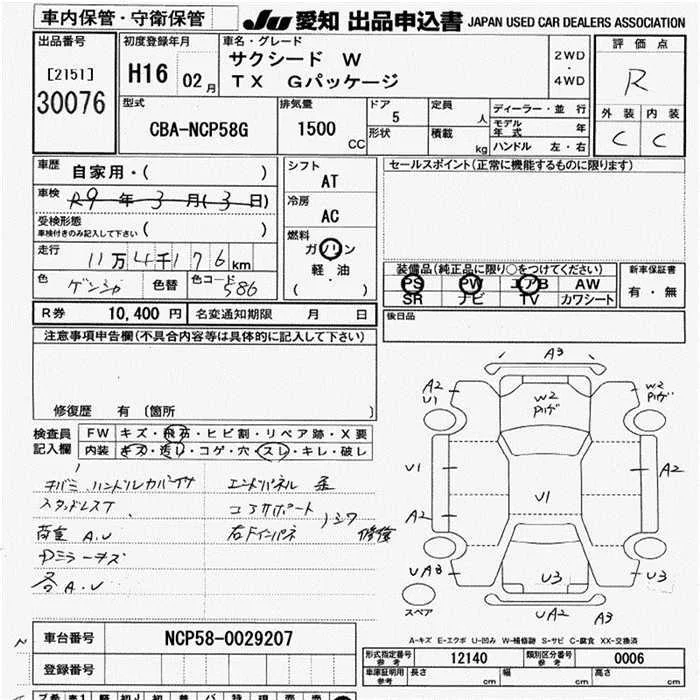 車内保管・守衛保管
JU 愛知 出品申込書 JAPAN USED CAR DEALERS ASSOCIATION
出品番号
[2151]
30076
初度登録年月
H16 02月
車名・グレード
サクシード W
TX Gパッケージ
2WD
・
4WD
評価点
R
外装 内装
C C
型式
CBA-NCP58G
排気量
1500 CC
ドア
5
形状
定員
人
積載
kg
ディーラー・並行
モデル年式 年
ハンドル 左・右
車歴 自家用・( )
車検 R9年3月(3日)
受検形態
車検付きのみ記入して下さい ( )
走行 11万4千176km
色 色替 色コード 586
シフト
AT
冷房
AC
燃料
ガソリン
軽油
( )
セールスポイント(正常に機能するものに限ります)
装備品(純正品に限り○をつけてください)
PS PW エアB AW
SR ナビ TV カワシート
新車保証書
有・無
R券 10,400円 名変通知期限 月 日
後日品
注意事項申告欄(不具合内容等は具体的に記入して下さい)
修復歴 有 [箇所 ]
検査員
記入欄
FW キズ・飛石・ヒビ割・リペア跡・X要
内装 キズ・汚レ・コゲ・穴・スレ・キレ・破レ
キバミ ハンドルカバイタ
スタッドレスT
荷室 A.U
各A.U
エンドパネル
コアサポート
右Fインパネ
修復
A3
A2
U1
W2
W2
U1
A2
U1
A2
UA3
U3
U3
UA2
A3
スペア
A-キズ E-エクボ U-凹み W-補修跡 S-サビ C-腐食 XX-交換済
車台番号 NCP58-0029207
登録番号
形式指定番号
参考
12140
類別区分番号
参考
0006
車庫証明用
参考
長さ cm 幅 cm 高さ cm